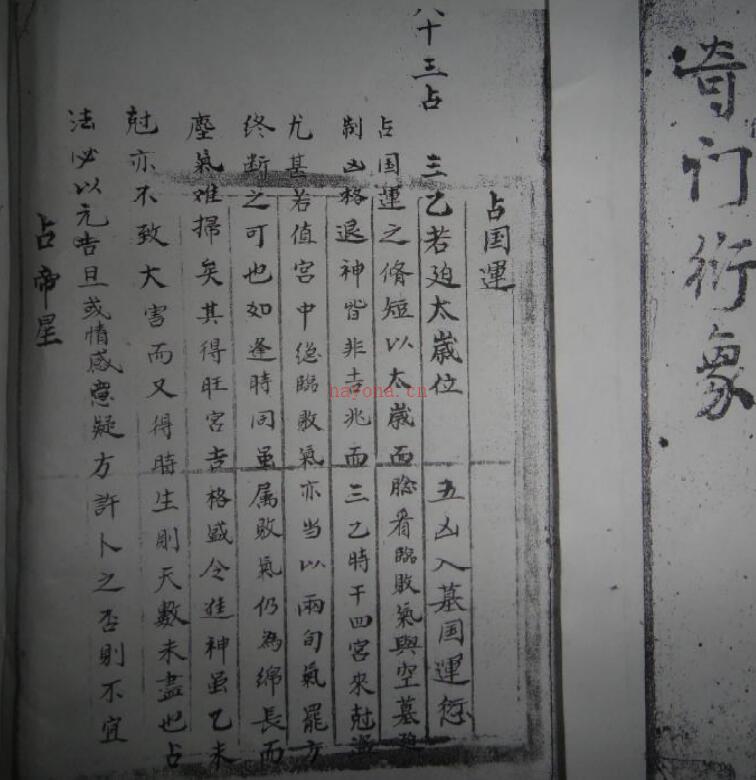 奇门衍象
八十三占
占国运
三乙若迫太嵗位 五凶入墓国运愆
占国運之脩短以太嵗而臨看臨敗氣與空墓
制凶格退神皆非吉兆而三乙時干四宮來尅
尤甚若值宮中總臨敗氣亦当以兩旬氣罷方
終断之可也如逢時同虽属敗氣仍為綿長而
塵氣难掃矣其得旺宮吉格盛令進神虽乙未
尅亦不致大害而又得時生則天數未盡也占
法必以元吉旦或情感意疑方許卜之否則不宜
占帝星
hayona.cn